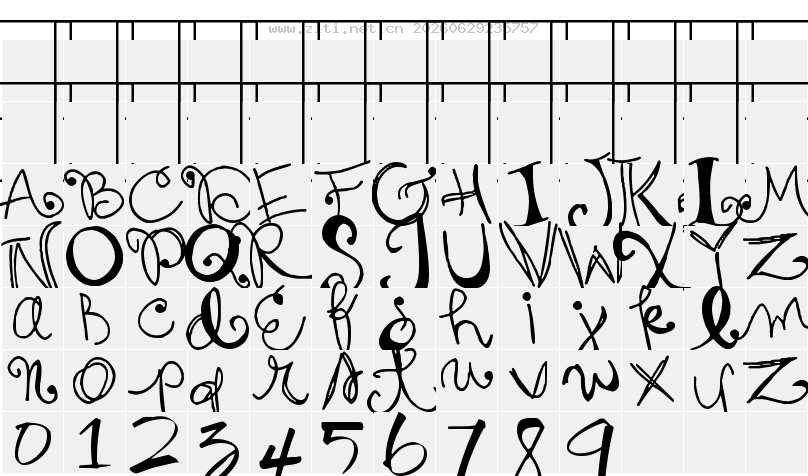 www.ziti.net.cn 20260629235757
A B C D E F G H I J K L M
N O P Q R S T U V W X Y Z
a b c d e f g h i j k l m
n o p q r s t u v w x y z
0 1 2 3 4 5 6 7 8 9